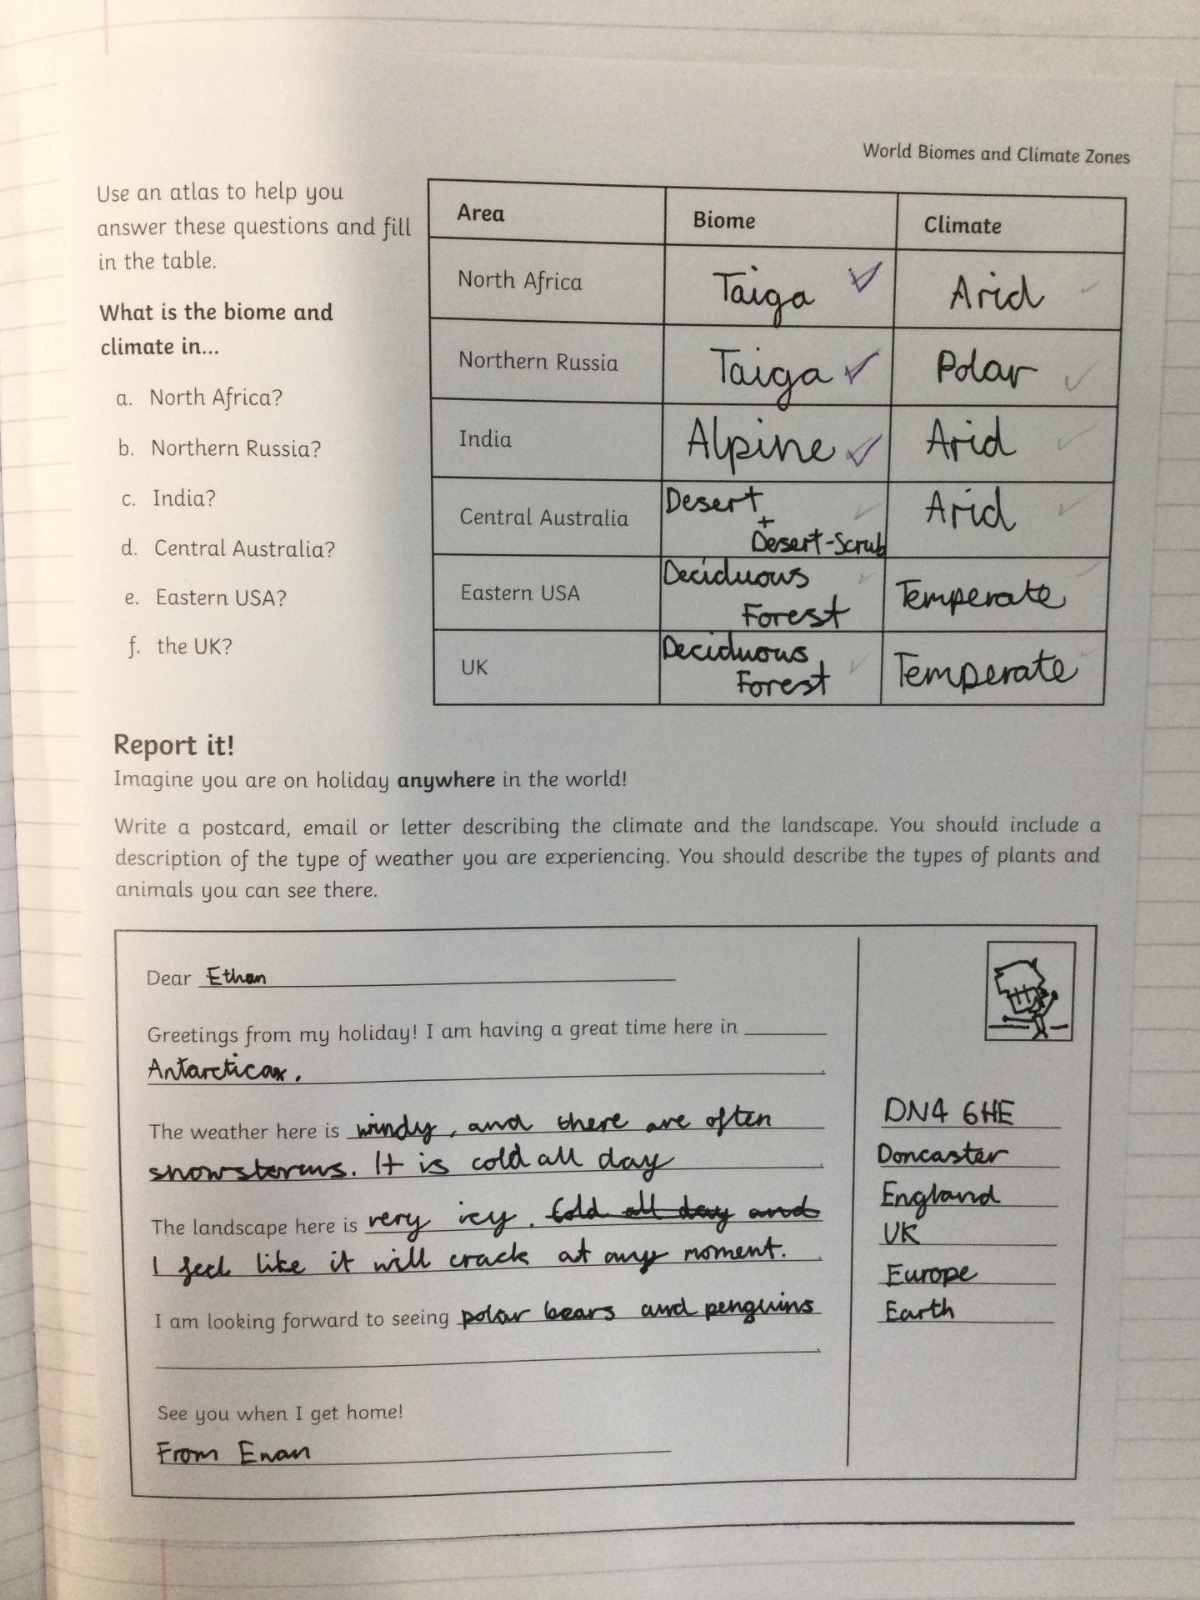 World Biomes and Climate Zones
Use an atlas to help you
answer these questions and fill
in the table.
What is the biome and
climate in...
a. North Africa?
b. Northern Russia?
c. India?
d. Central Australia?
e. Eastern USA?
f. the UK?
Area Biome Climate
North Africa Taiga Arid
Northern Russia Taiga Polar
India Alpine Arid
Central Australia Desert + Desert-Scrub Arid
Eastern USA Deciduous Forest Temperate
UK Deciduous Forest Temperate
Report it!
Imagine you are on holiday anywhere in the world!
Write a postcard, email or letter describing the climate and the landscape. You should include a
description of the type of weather you are experiencing. You should describe the types of plants and
animals you can see there.
Dear Ethan
Greetings from my holiday! I am having a great time here in
Antarctica.
The weather here is windy, and there are often
snowstorms. It is cold all day
The landscape here is very icy. Cold all day and
I feel like it will crack at any moment.
I am looking forward to seeing polar bears and penguins
See you when I get home!
From Enan
DN4 6HE
Doncaster
England
UK
Europe
Earth